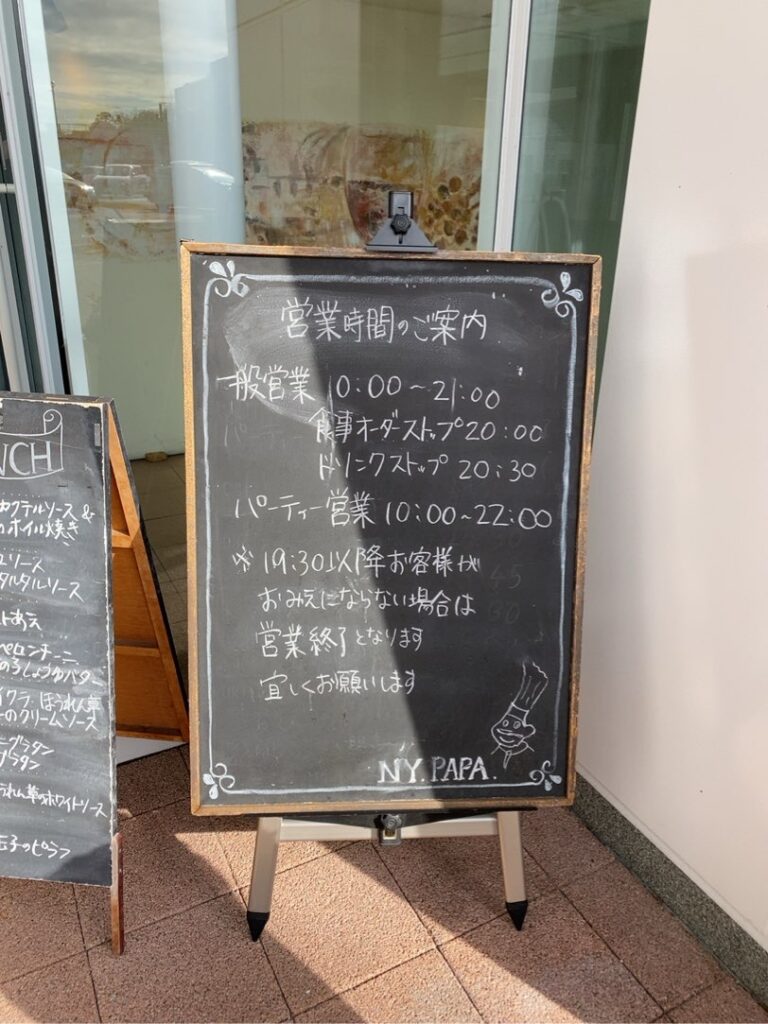 営業時間のご案内
一般営業 10:00〜21:00
食事オーダーストップ20:00
ドリンクストップ 20:30
パーティー営業 10:00〜22:00
※ 19:30以降お客様が
おみえにならない場合は
営業終了となります
宜しくお願いします
NY. PAPA.
NCH
カクテルソース &
ホイル焼き
ソース
タルタルソース
のろしょうゆバター
イクラ、ほうれん草
ーのクリームソース
ングラタン
グラタン
うれん草のホワイトソース
玉子のピラフ